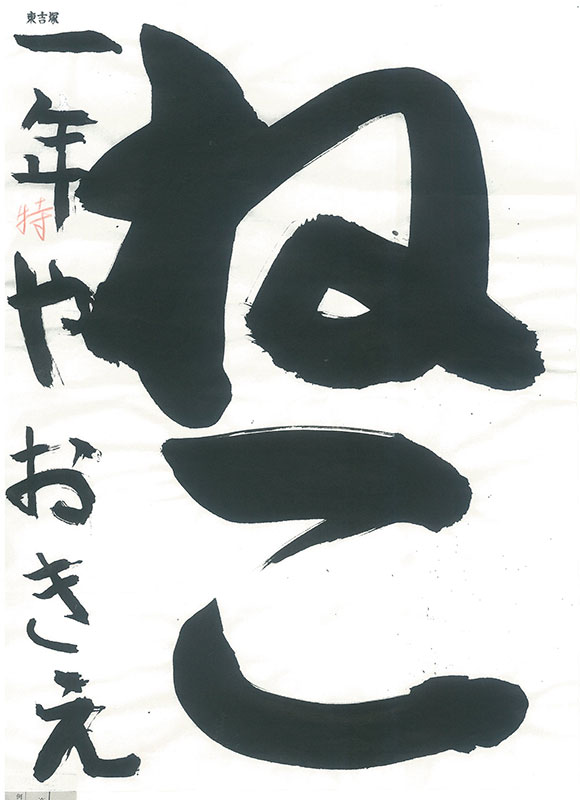 ねこ
東吉塚
一年やおきえ
特